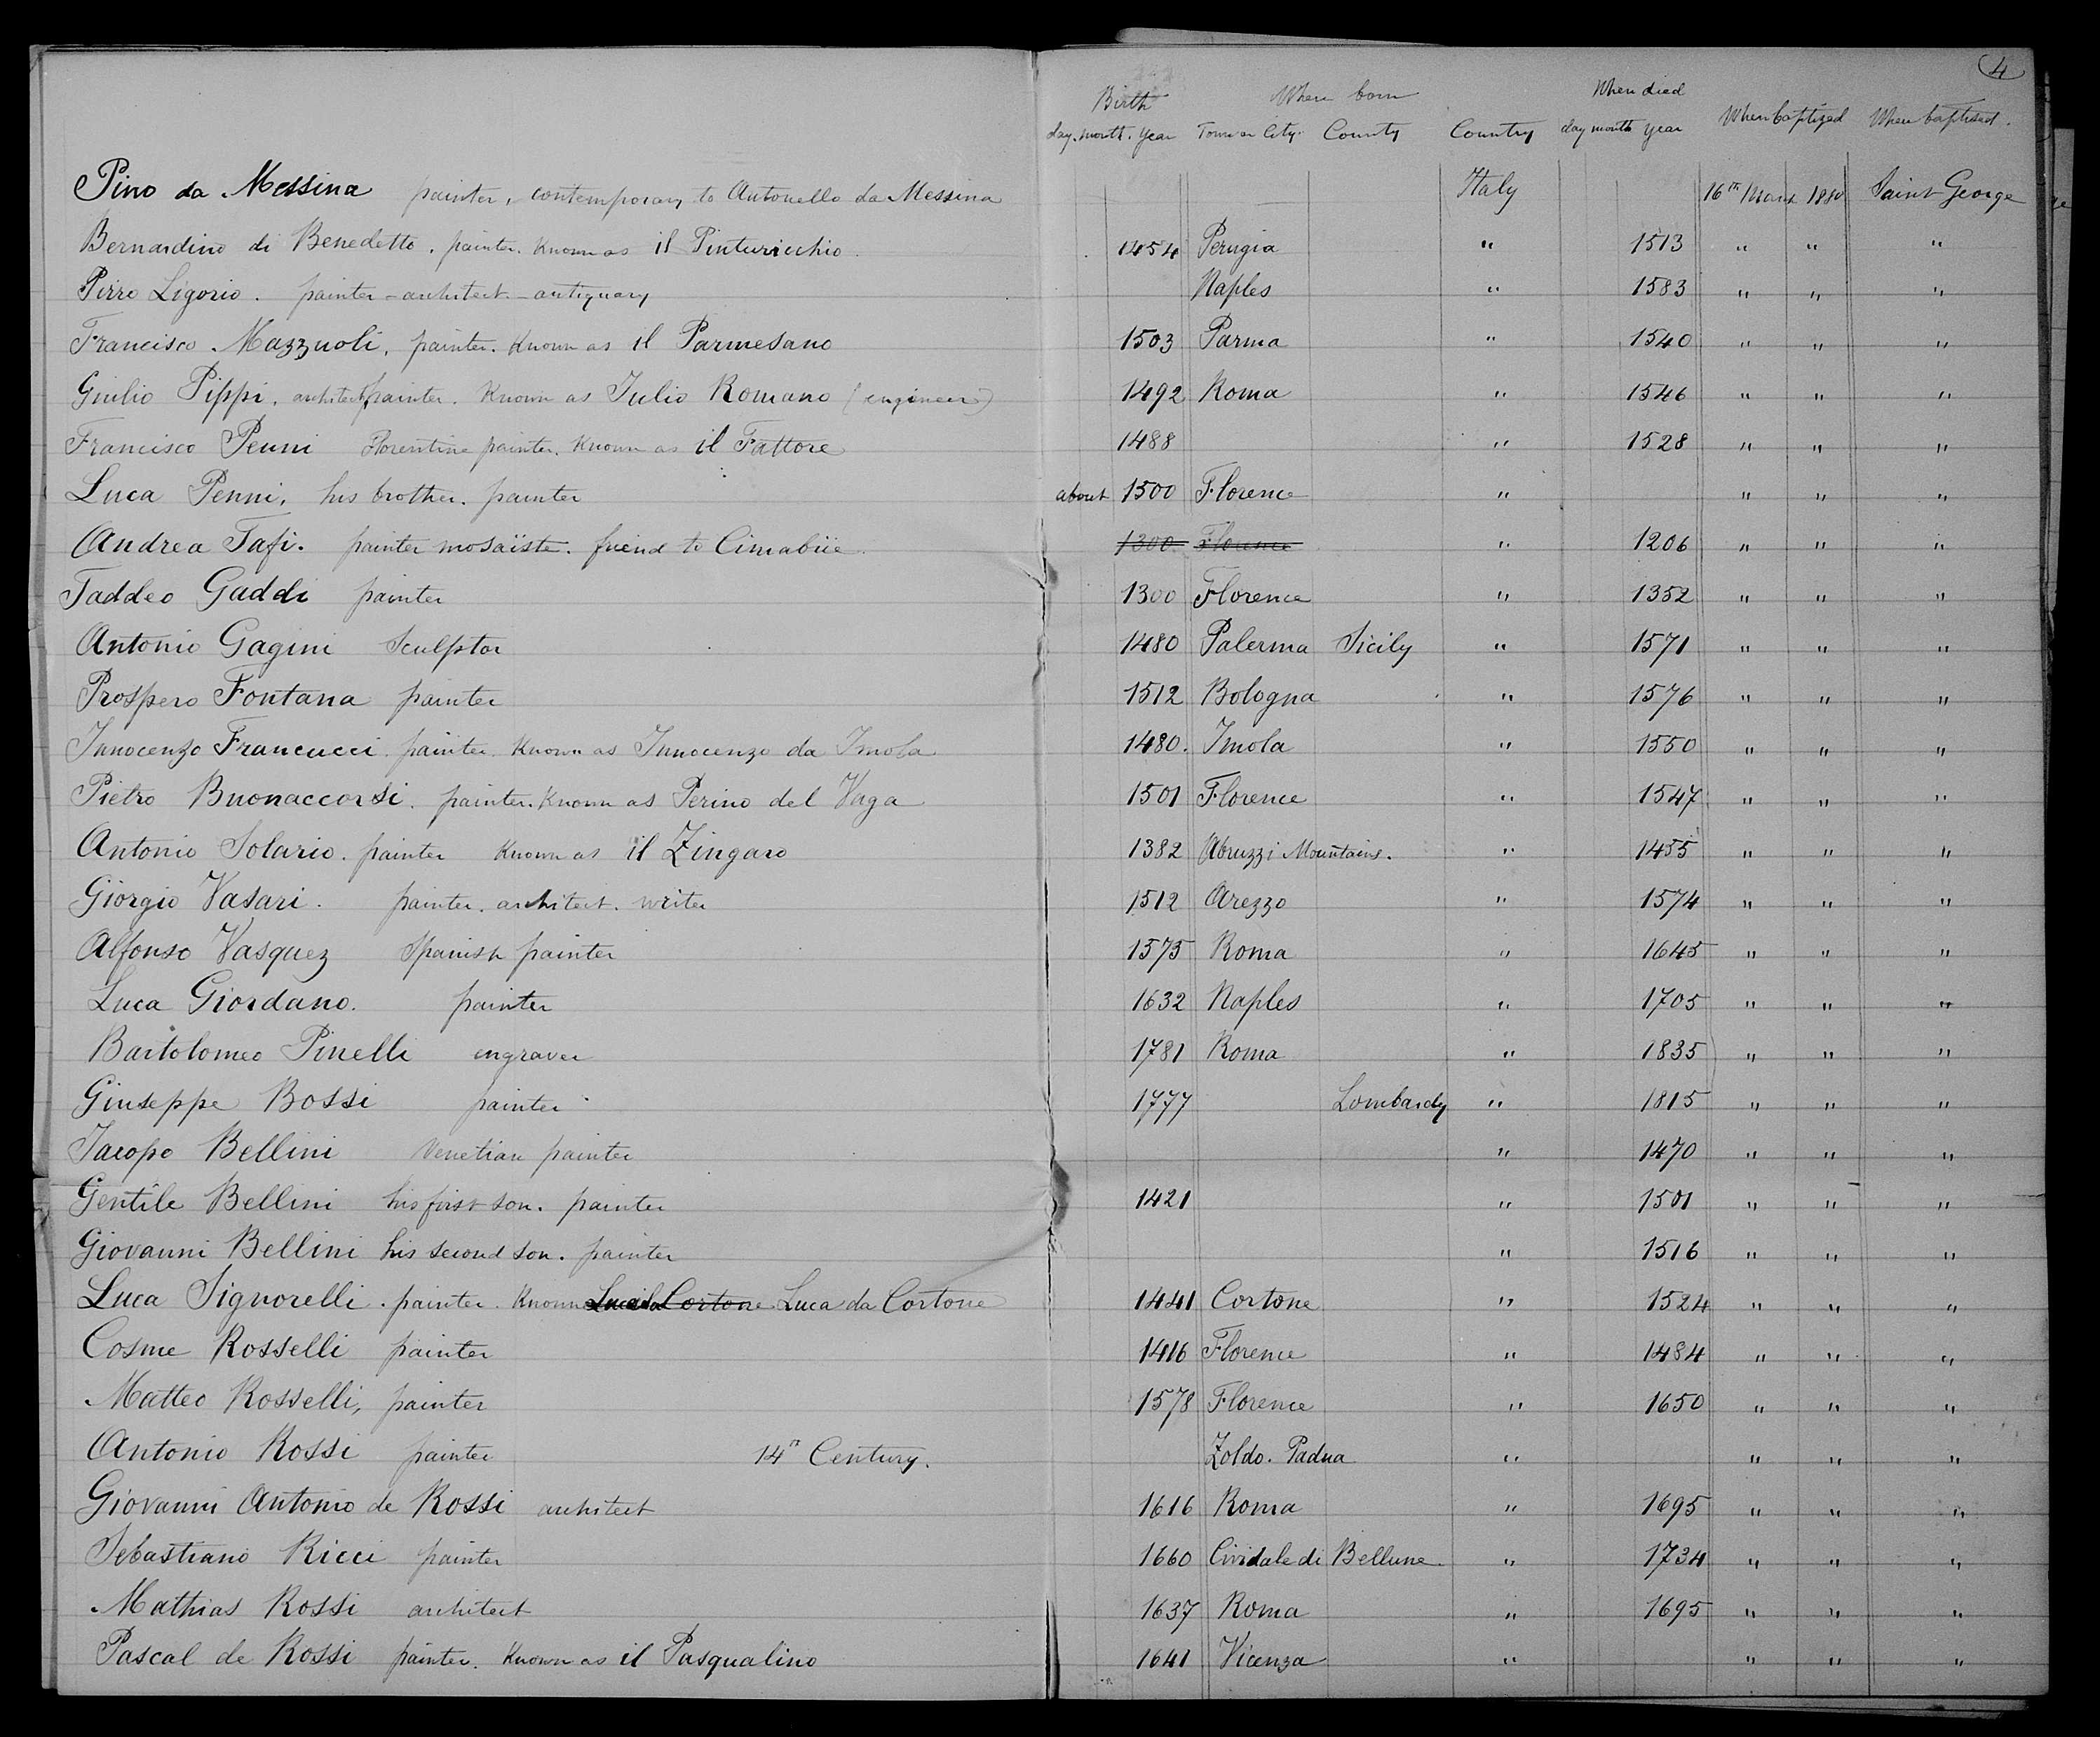 4
Birth When born When died When baptized When baptised.
day. month. Year Town or City. County Country day month Year
Pino da Messina painter, contemporary to Antonello da Messina Italy 16th 1880 Saint George
Bernardino di Benedetto. painter. Known as il Pinturicchio. 1454 Perugia " 1513 " " "
Pirro Ligorio. painter - architect - antiquary Naples " 1583 " " "
Francisco Mazzuoli, painter. Known as il Parmesano 1503 Parma " 1540 " " "
Giulio Pippi, architect, painter. Known as Julio Romano (engineer) 1492 Roma " 1546 " " "
Francisco Penni Florentine painter. Known as il Fattore 1488 " 1528 " " "
Luca Penni, his brother. painter about 1500 Florence " " " "
Andrea Tafi. painter mosaïste. friend to Cimabüe. 1300 Florence " 1206 " " "
Taddeo Gaddi painter 1300 Florence " 1352 " " "
Antonio Gagini Sculptor 1480 Palerma Sicily " 1571 " " "
Prospero Fontana painter 1512 Bologna " 1576 " " "
Innocenzo Francucci. painter. Known as Innocenzo da Imola 1480. Imola " 1550 " " "
Pietro Buonaccorsi. painter. Known as Perino del Vaga 1501 Florence " 1547 " " "
Antonio Solario. painter Known as il Zingaro 1382 Abruzzi Mountains. " 1455 " " "
Giorgio Vasari. painter. architect. writer 1512 Arezzo " 1574 " " "
Alfonso Vasquez Spanish painter 1575 Roma " 1645 " " "
Luca Giordano. painter 1632 Naples " 1705 " " "
Bartolomeo Pinelli engraver 1781 Roma " 1835 " " "
Giuseppe Bossi painter 1777 Lombardy " 1815 " " "
Jacopo Bellini Venetian painter " 1470 " " "
Gentile Bellini his first son. painter 1421 " 1501 " " "
Giovanni Bellini his second son. painter " 1516 " " "
Luca Signorelli. painter. Known Luca da Cortone Luca da Cortone 1441 Cortone " 1524 " " "
Cosme Rosselli painter 1416 Florence " 1484 " " "
Matteo Rosselli, painter 1578 Florence " 1650 " " "
Antonio Rossi painter 14th Century. Zoldo. Padua " " " "
Giovanni Antonio de Rossi architect 1616 Roma " 1695 " " "
Sebastiano Ricci painter 1660 Cividale di Bellune " 1734 " " "
Mathias Rossi architect 1637 Roma " 1695 " " "
Pascal de Rossi painter. Known as il Pasqualino 1641 Vicenza " " " "